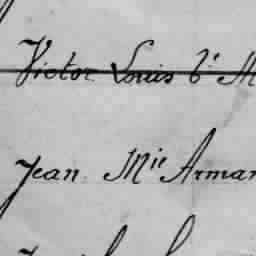 Victor Louis b.t M
Jean Mie Arman